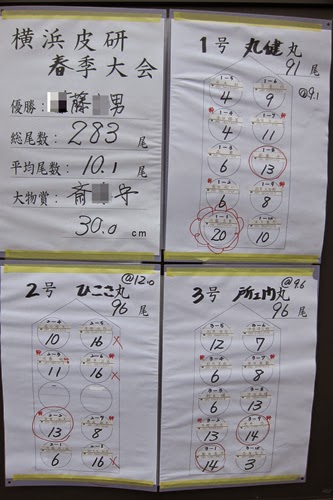 横浜皮研
春季大会
優勝: 藤 男
総尾数: 283 尾
平均尾数: 10.1 尾
大物賞: 斎
30.0 cm
1号 丸健丸
91尾
@9.1
4 9
4 11
6 13
6 8
20 10
@12.0
2号 ひこさ丸
96尾
10 16 ×
11 16 ×
13 8
6 16 ×
@9.6
3号 丸
96尾
12 7
6 8
6 13
13 14
14 3